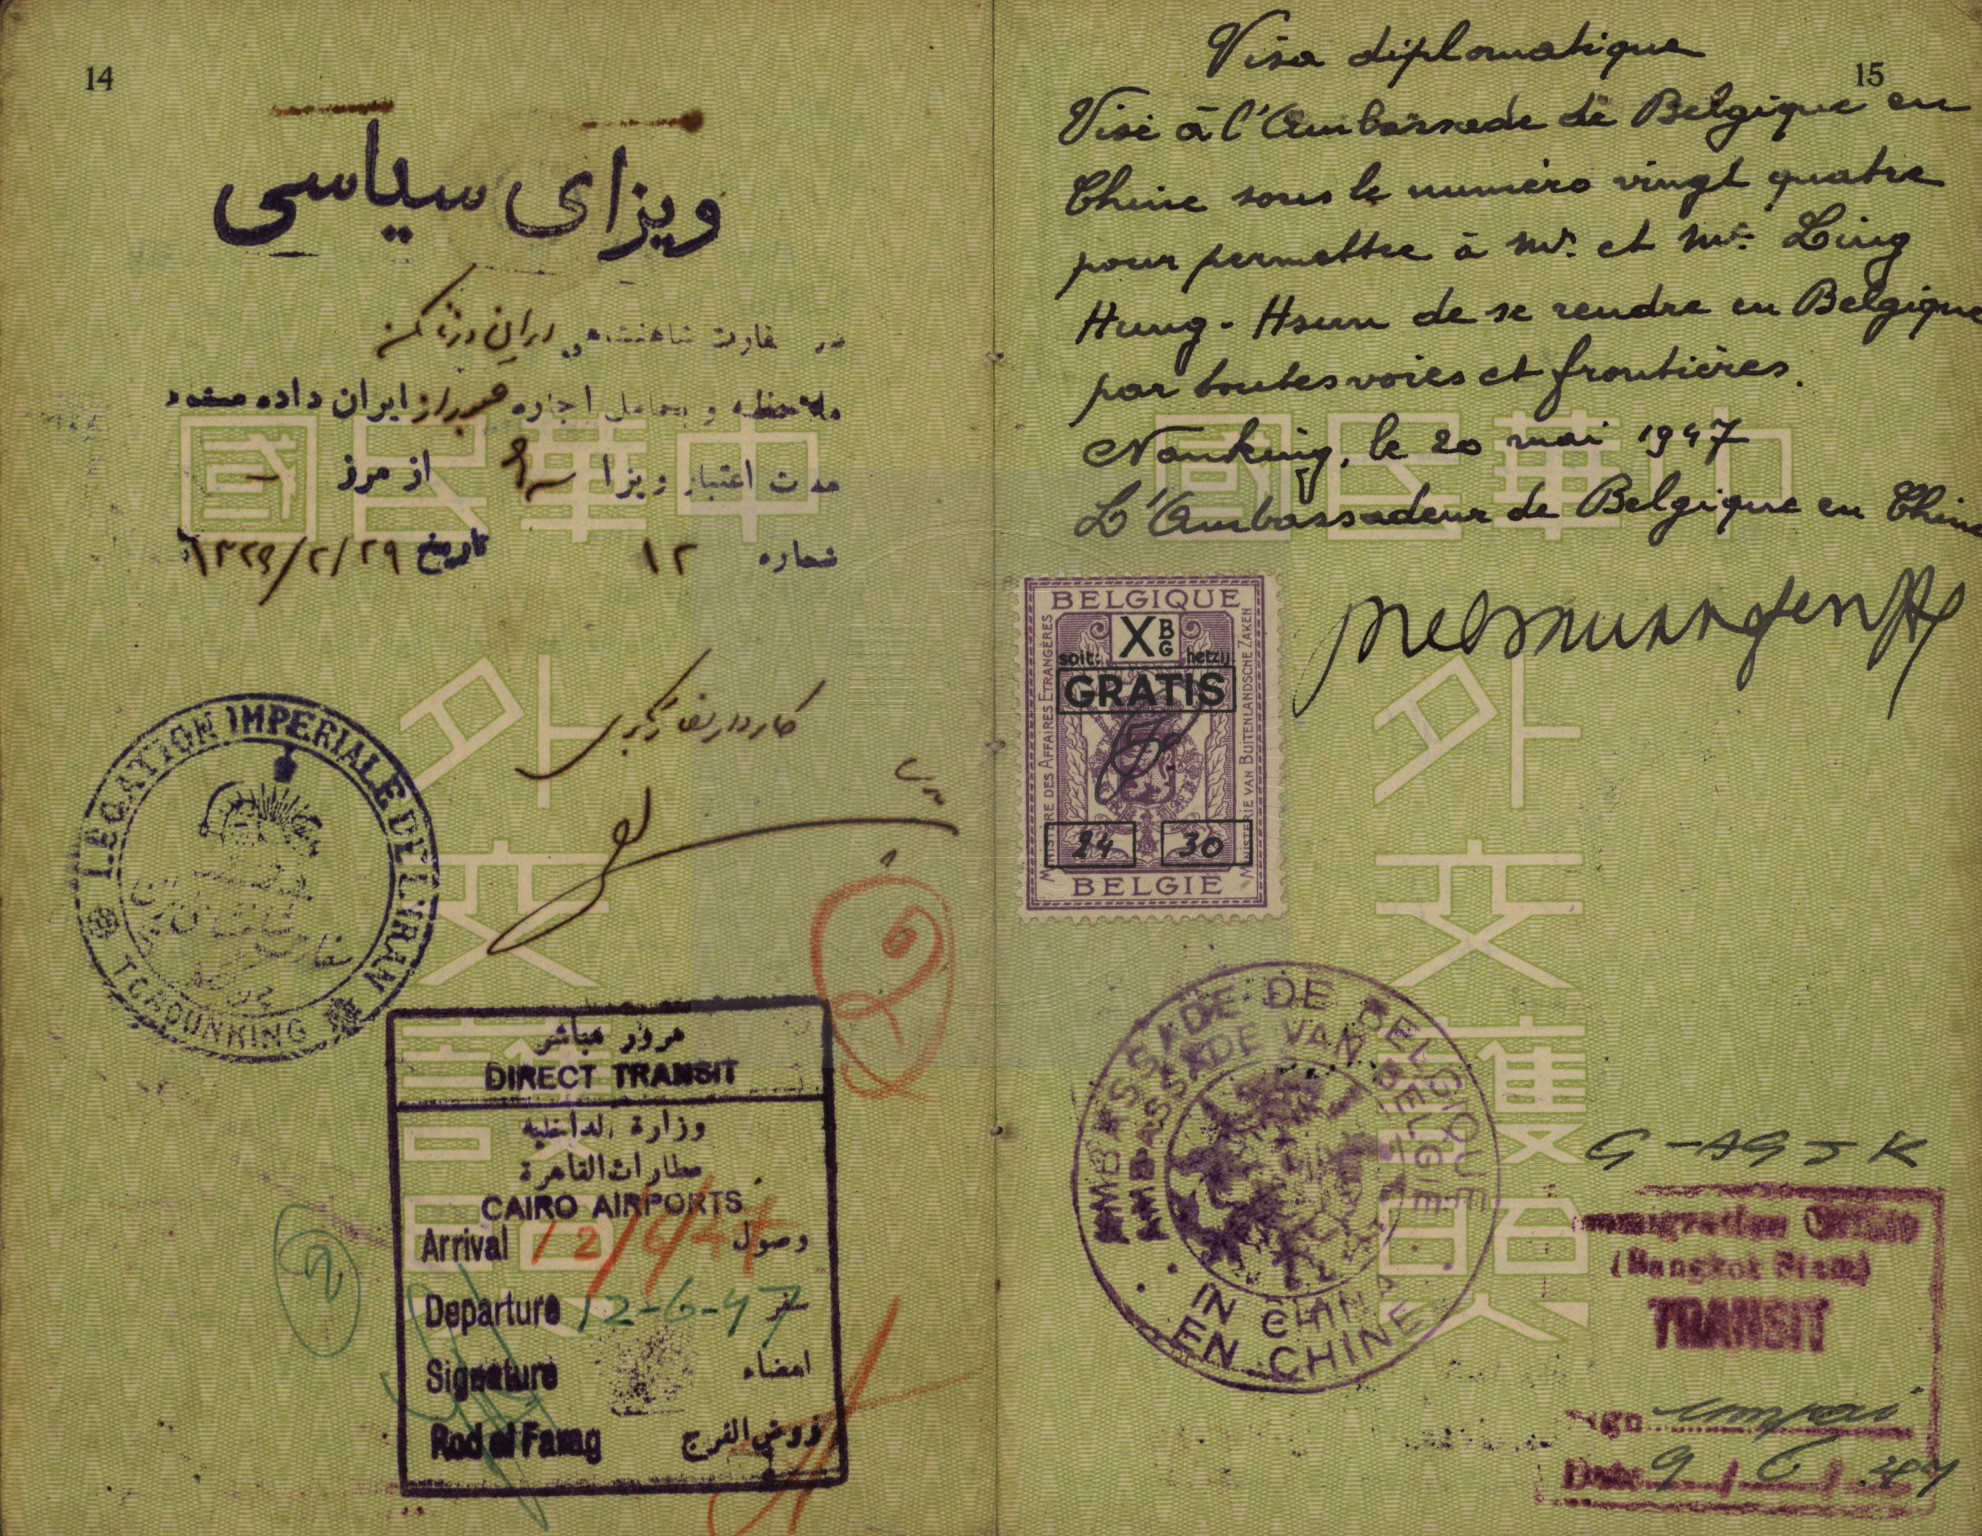 14
ویزای سیاسی
در سفارت شاهنشاهی ایران در نانکن
ملاحظه و بحامل اجازه عبور از ایران داده میشود
مدت اعتبار ویزا از مرز
شماره ۱۲ تاریخ ۱۳۲۶/۲/۲۹
کاردار سفارت کبری
LEGATION IMPERIALE DE L'IRAN
TCHOUNKING
مرور مباشر
DIRECT TRANSIT
وزارة الداخلية
مطارات القاهرة
CAIRO AIRPORTS
Arrival 12/6/47 وصول
Departure 12-6-47 سفر
Signature امضاء
Rod el Farag روض الفرج
中華民國
外交護照
15
Visa diplomatique
Visé à l'Ambassade de Belgique en
Chine sous le numéro vingt quatre
pour permettre à Mr. et Me. Ling
Hung-Hsun de se rendre en Belgique
par toutes voies et frontières.
Nanking, le 20 mai 1947
L'Ambassadeur de Belgique en Chine
BELGIQUE
X B G
soit: hetzij:
GRATIS
MINISTÈRE DES AFFAIRES ETRANGÈRES
MINISTERIE VAN BUITENLANDSCHE ZAKEN
24 30
BELGIË
AMBASSADE DE BELGIQUE
AMBASSADE VAN BELGIE
IN CHINA
EN CHINE
中華民國
外交護照
G-AGJK
Immigration Office
(Bangkok Siam)
TRANSIT
Date 9/6/47